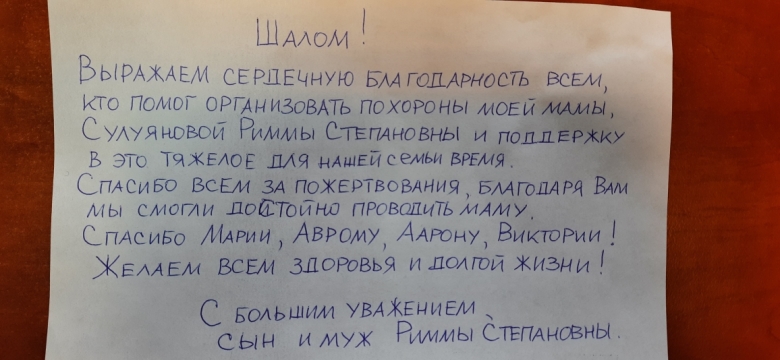 Шалом!
Выражаем сердечную благодарность всем,
кто помог организовать похороны моей мамы,
Сулуяновой Риммы Степановны и поддержку
в это тяжелое для нашей семьи время.
Спасибо всем за пожертвования, благодаря Вам
мы смогли достойно проводить маму.
Спасибо Марии, Аврому, Аарону, Виктории!
Желаем всем здоровья и долгой жизни!
С большим уважением
сын и муж Риммы Степановны.